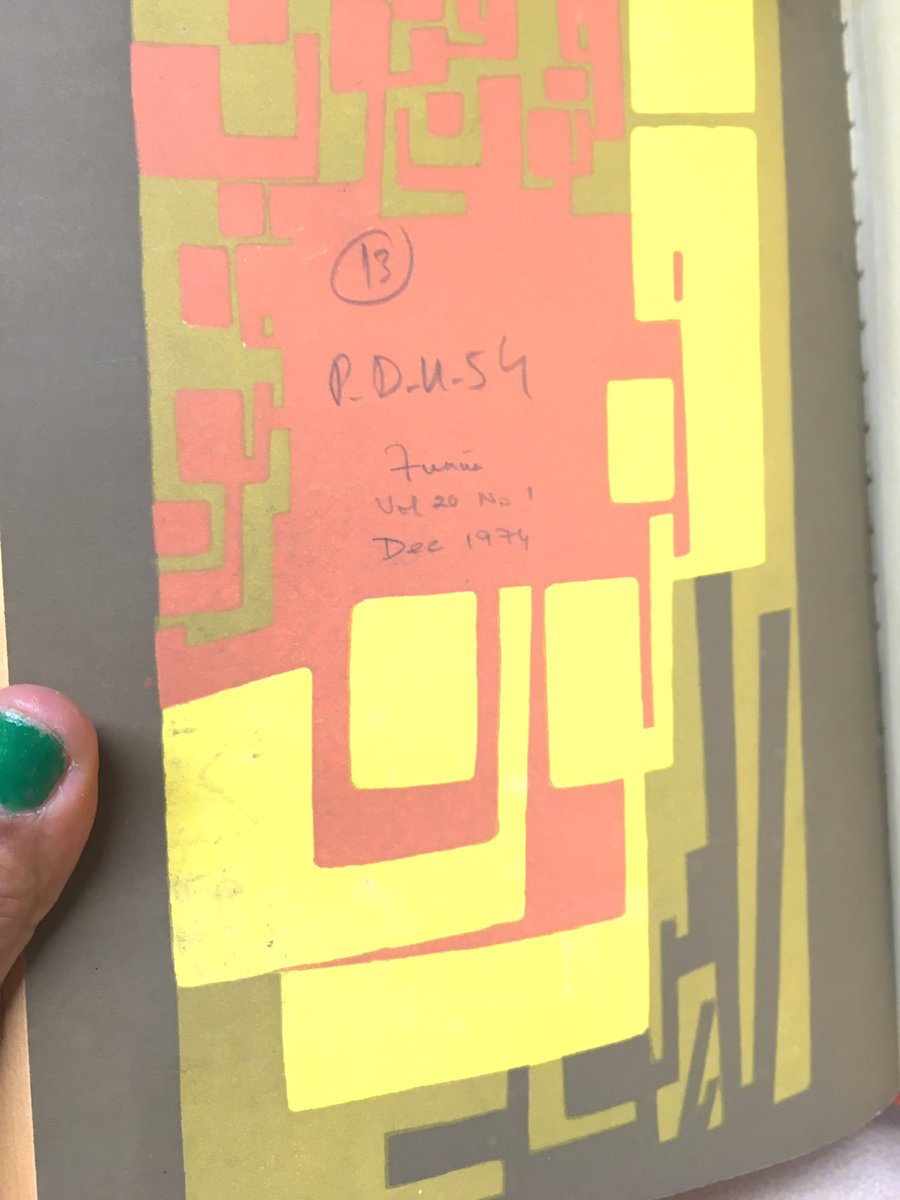 13
P-D-U-54
Vol 20 No 1
Dec 1974